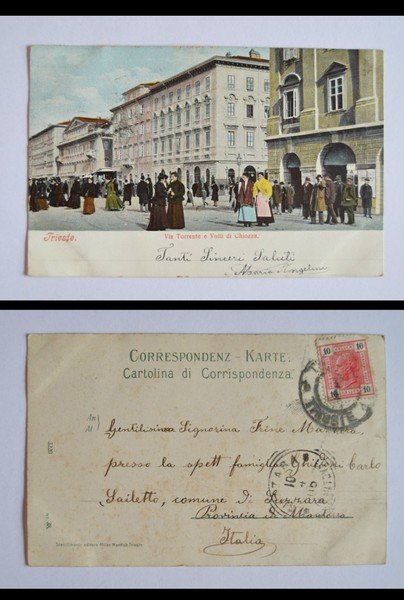 Trieste.
Via Torrente e Volti di Chiozza.
Tanti Sinceri Saluti
Maria Angelini
CORRESPONDENZ - KARTE.
Cartolina di Corrispondenza.
10 10
10 10
Gentilissima Signorina Irene
presso la spett famiglia Ghidoni Carlo
Sailetto, comune di Suzzara
Provincia di Mantova
Italia
Stabilimento editore Milan Mantich Trieste